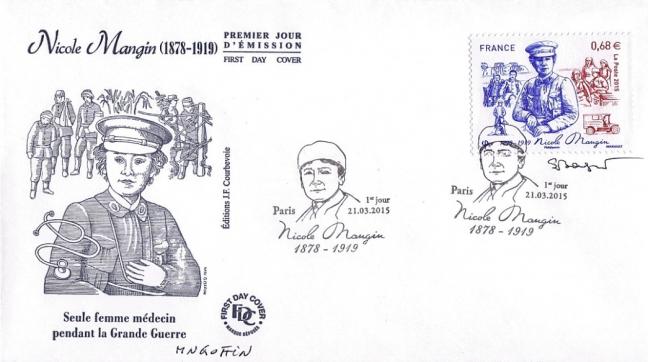 Nicole Mangin (1878-1919)
PREMIER JOUR
D'ÉMISSION
FIRST DAY COVER
FRANCE
0,68 €
La Poste 2015
1878 - 1919 Nicole Mangin
Éditions J.F. Courbevoie
Paris
1er jour
21.03.2015
Nicole Mangin
1878 - 1919
Paris
1er jour
21.03.2015
Nicole Mangin
1878 - 1919
Seule femme médecin
pendant la Grande Guerre
FIRST DAY COVER
FDC
MARQUE DÉPOSÉE
MNGOFFIN